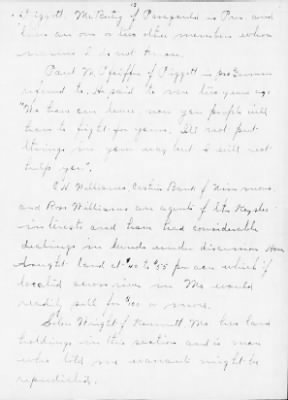 Piggott, McCarty of Paragould is Pres. and
there are one or two other members whose
names I do not know.
Paul M. Pfeiffer of Piggott is
referred to. He said to me two years ago
"We here can leave, now you people will
have to fight for yours. I'll not put
things in your way but I will not
help you".
C.H. Williams, Cashier Bank of
and Ross Williams are agents of the
interests and have had considerable
dealings in lands under discussion
bought land at $40 to $55 per acre which if
located across river in Mo would
readily sell for $100 or more.
Wright of Kennett, Mo has land
holdings in this section and is man
who told me warrants might be
repudiated.